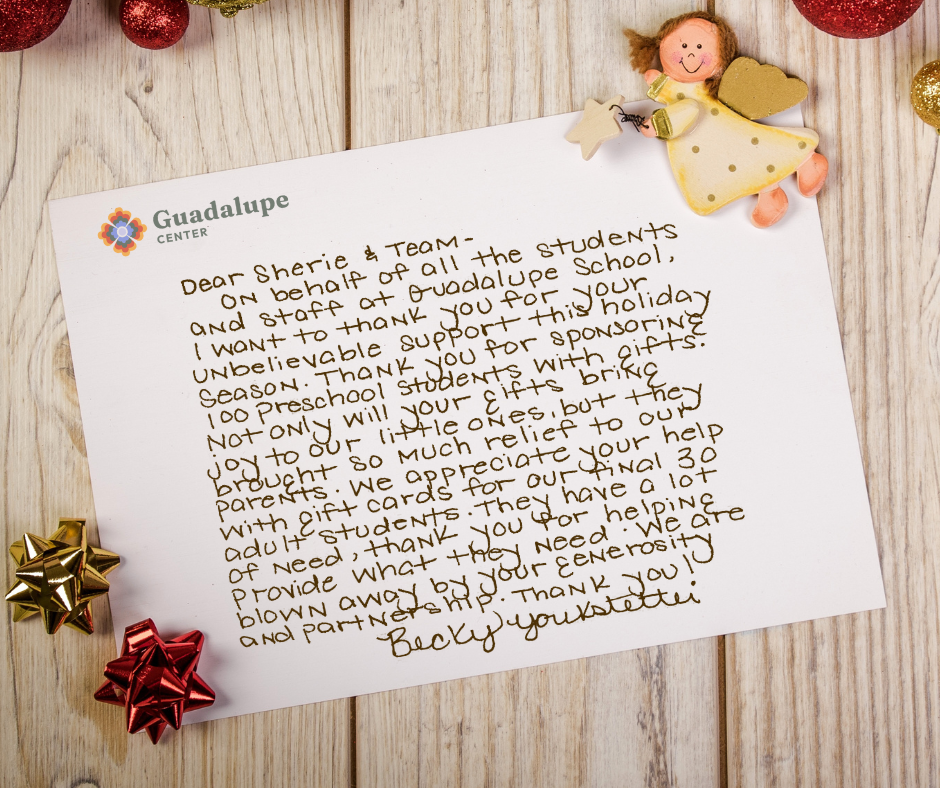 Guadalupe
CENTER
Dear Sherie & Team-
On behalf of all the students
and staff at Guadalupe School,
I want to thank you for your
unbelievable support this holiday
season. Thank you for sponsoring
100 preschool students with gifts.
Not only will your gifts bring
joy to our little ones, but they
brought so much relief to our
parents. We appreciate your help
with gift cards for our final 30
adult students. They have a lot
of need, thank you for helping
provide what they need. We are
blown away by your generosity
and partnership. Thank you!
Becky Youkstetter